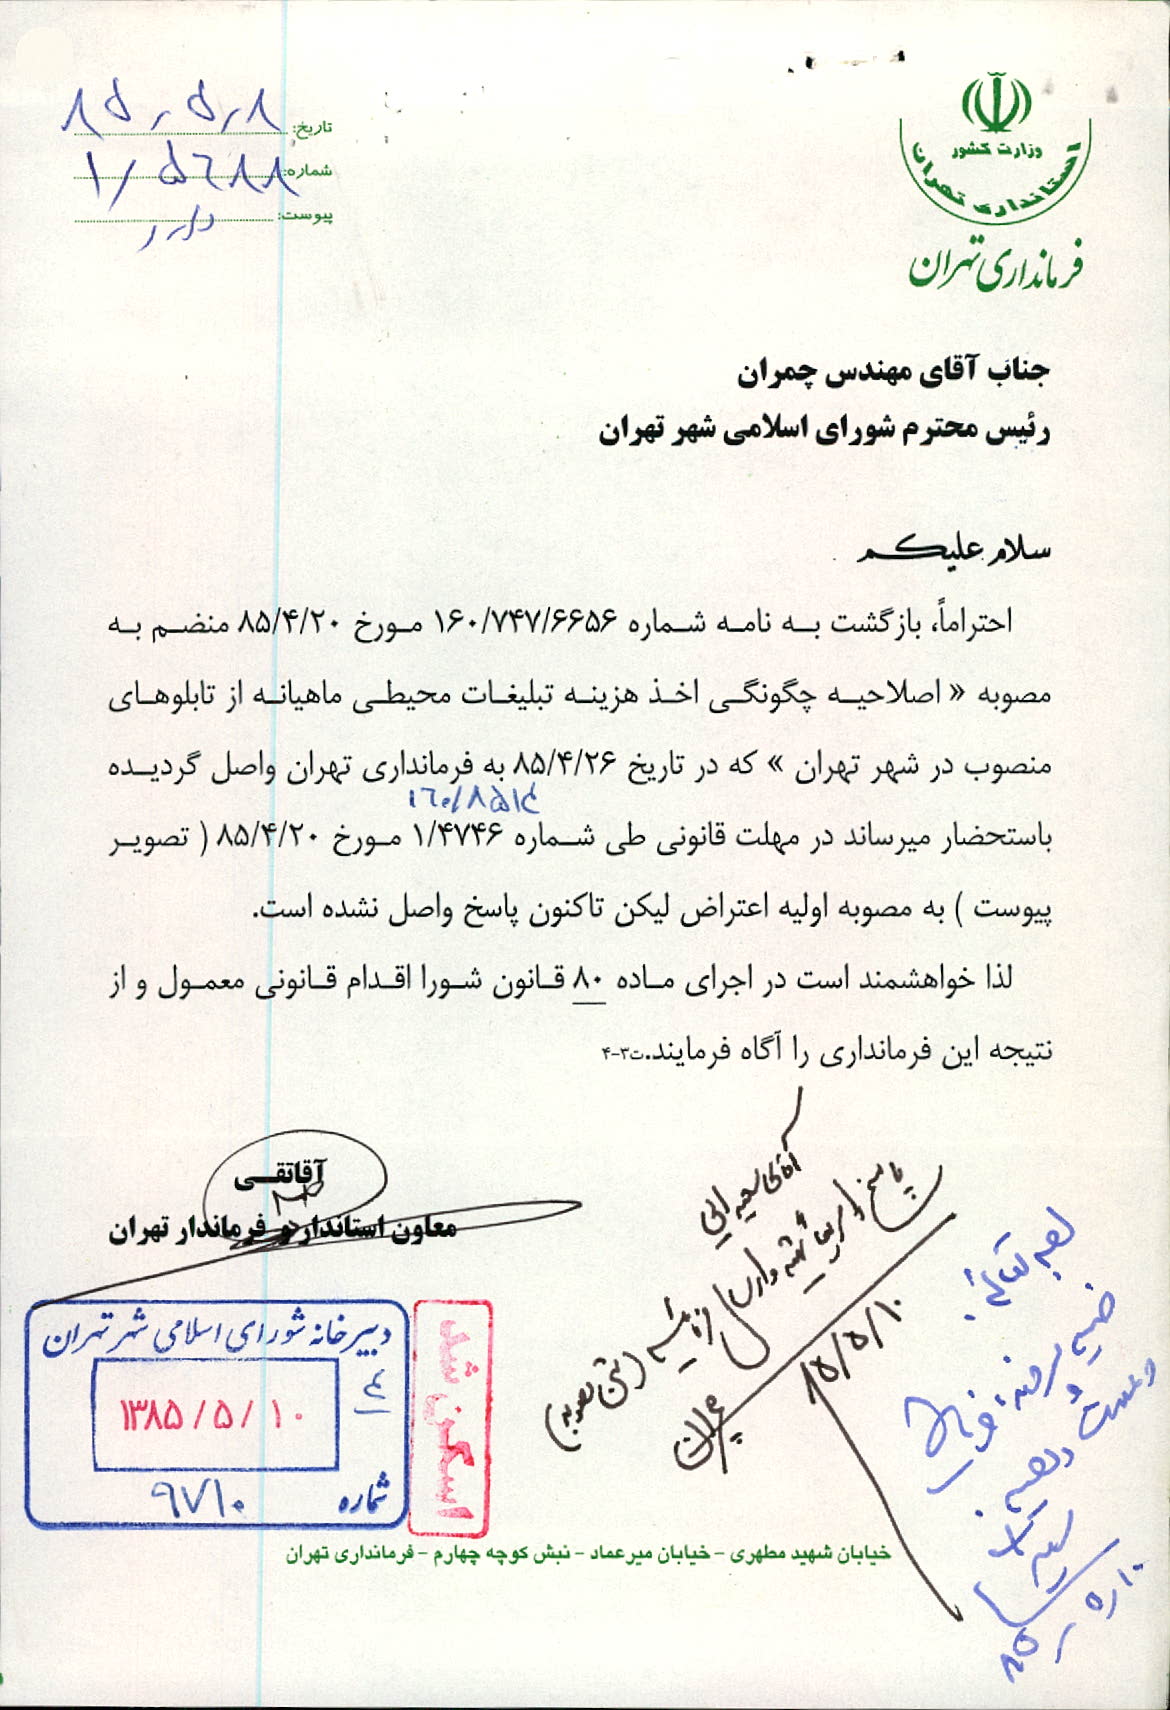 وزارت کشور
استانداری تهران
فرمانداری تهران
تاریخ: ۸۵،۵،۸
شماره: ۱/۵۶۸۸
پیوست: دارد
جناب آقای مهندس چمران
رئیس محترم شورای اسلامی شهر تهران
سلام علیکم
احتراماً، بازگشت به نامه شماره ۱۶۰/۷۴۷/۶۶۵۶ مورخ ۸۵/۴/۲۰ منضم به
مصوبه « اصلاحیه چگونگی اخذ هزینه تبلیغات محیطی ماهیانه از تابلوهای
منصوب در شهر تهران » که در تاریخ ۸۵/۴/۲۶ به فرمانداری تهران واصل گردیده
۱۶۰/۸۵۱۴
باستحضار میرساند در مهلت قانونی طی شماره ۱/۴۷۴۶ مورخ ۸۵/۴/۲۰ ( تصویر
پیوست ) به مصوبه اولیه اعتراض لیکن تاکنون پاسخ واصل نشده است.
لذا خواهشمند است در اجرای ماده ۸۰ قانون شورا اقدام قانونی معمول و از
نتیجه این فرمانداری را آگاه فرمایند.ت۳-۴
آقاتقی
معاون استاندار و فرماندار تهران
آقای سعید
پاسخ
چمران
۸۵/۵/۱۰
۸۵/۵/۱۰
دبیرخانه شورای اسلامی شهر تهران
۱۳۸۵/۵/۱۰
شماره ۹۷۱۰
اسکن شد
خیابان شهید مطهری - خیابان میرعماد - نبش کوچه چهارم - فرمانداری تهران